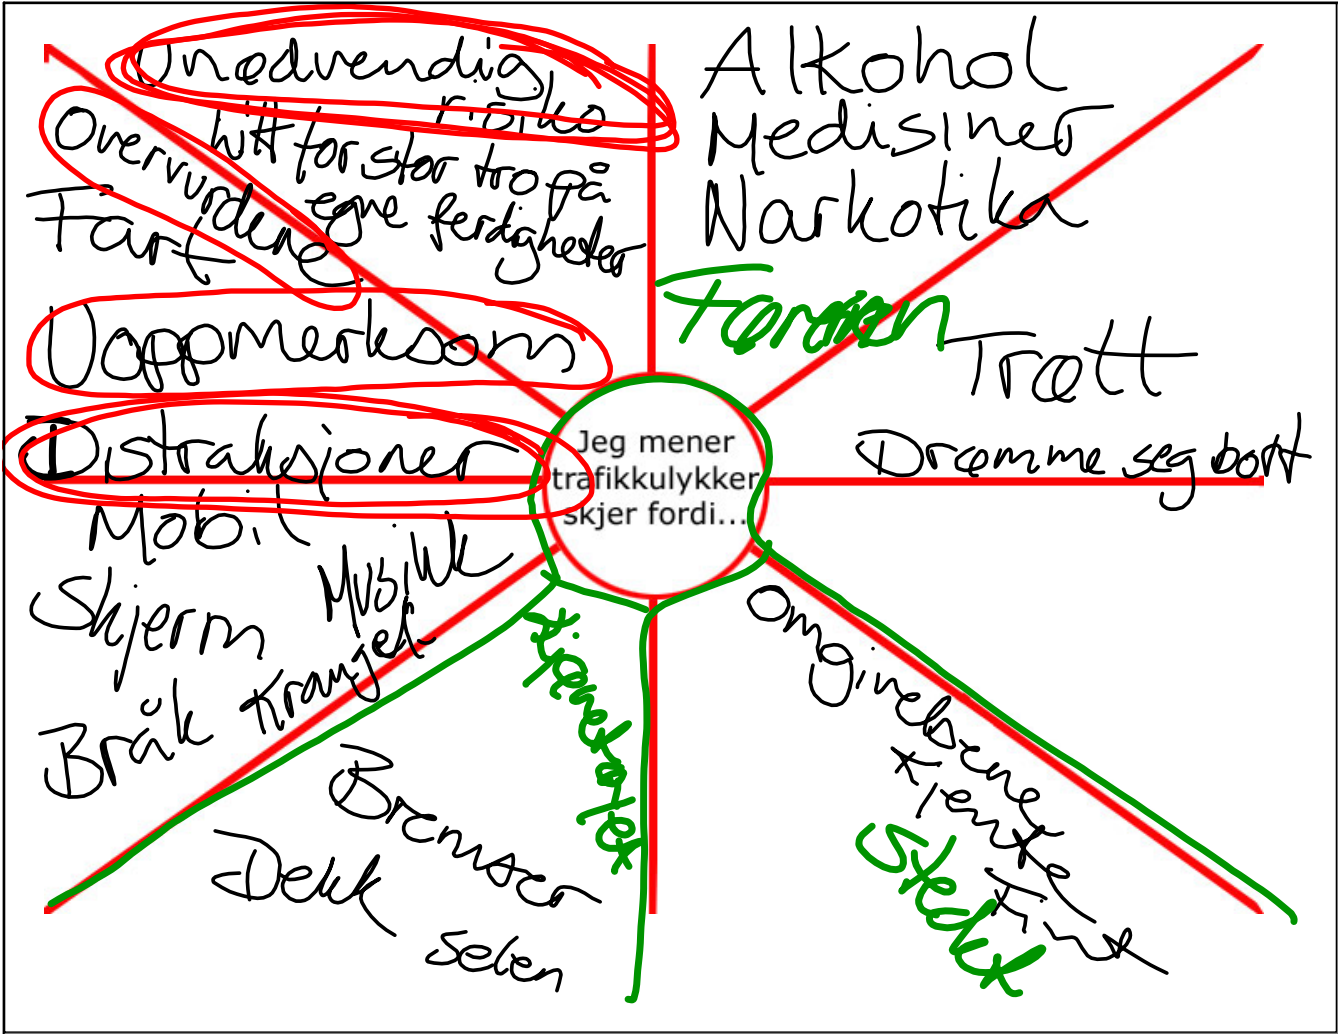 Unødvendig
risiko
litt for stor tro på
egne ferdigheter
Overvurdere
Fart
Uoppmerksom
Distraksjoner
Mobil
Musikk
Skjerm
Krangel
Bråk
Alkohol
Medisiner
Narkotika
Føreren
Trøtt
Drømme seg bort
Jeg mener
trafikkulykker
skjer fordi...
Kjøretøyet
Bremser
Dekk
selen
Omgivelsene
Stedet